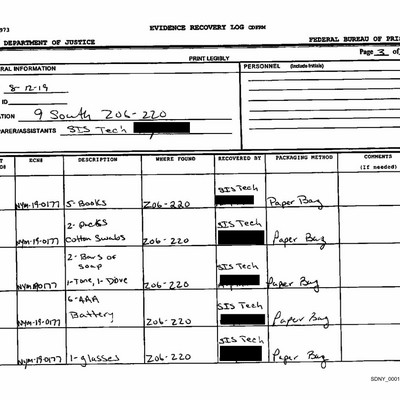 973
EVIDENCE RECOVERY LOG CDFRM
DEPARTMENT OF JUSTICE
FEDERAL BUREAU OF PRI
PRINT LEGIBLY
Page 3 of
RAL INFORMATION
PERSONNEL (Include Initials)
8-12-19
ID
ATION 9 South Z06-220
PARER/ASSISTANTS SIS Tech
ECN# DESCRIPTION WHERE FOUND RECOVERED BY PACKAGING METHOD COMMENTS
(If needed)
NYM-19-0177 5-Books Z06-220 SIS Tech Paper Bag
NYM-19-0177 2-packs Cotton Swabs Z06-220 SIS Tech Paper Bag
NYM-19-0177 2-Bars of soap 1-Tone, 1-Dove Z06-220 SIS Tech Paper Bag
NYM-19-0177 6-AAA Battery Z06-220 SIS Tech Paper Bag
NYM-19-0177 1-glasses Z06-220 SIS Tech Paper Bag
SDNY_0001